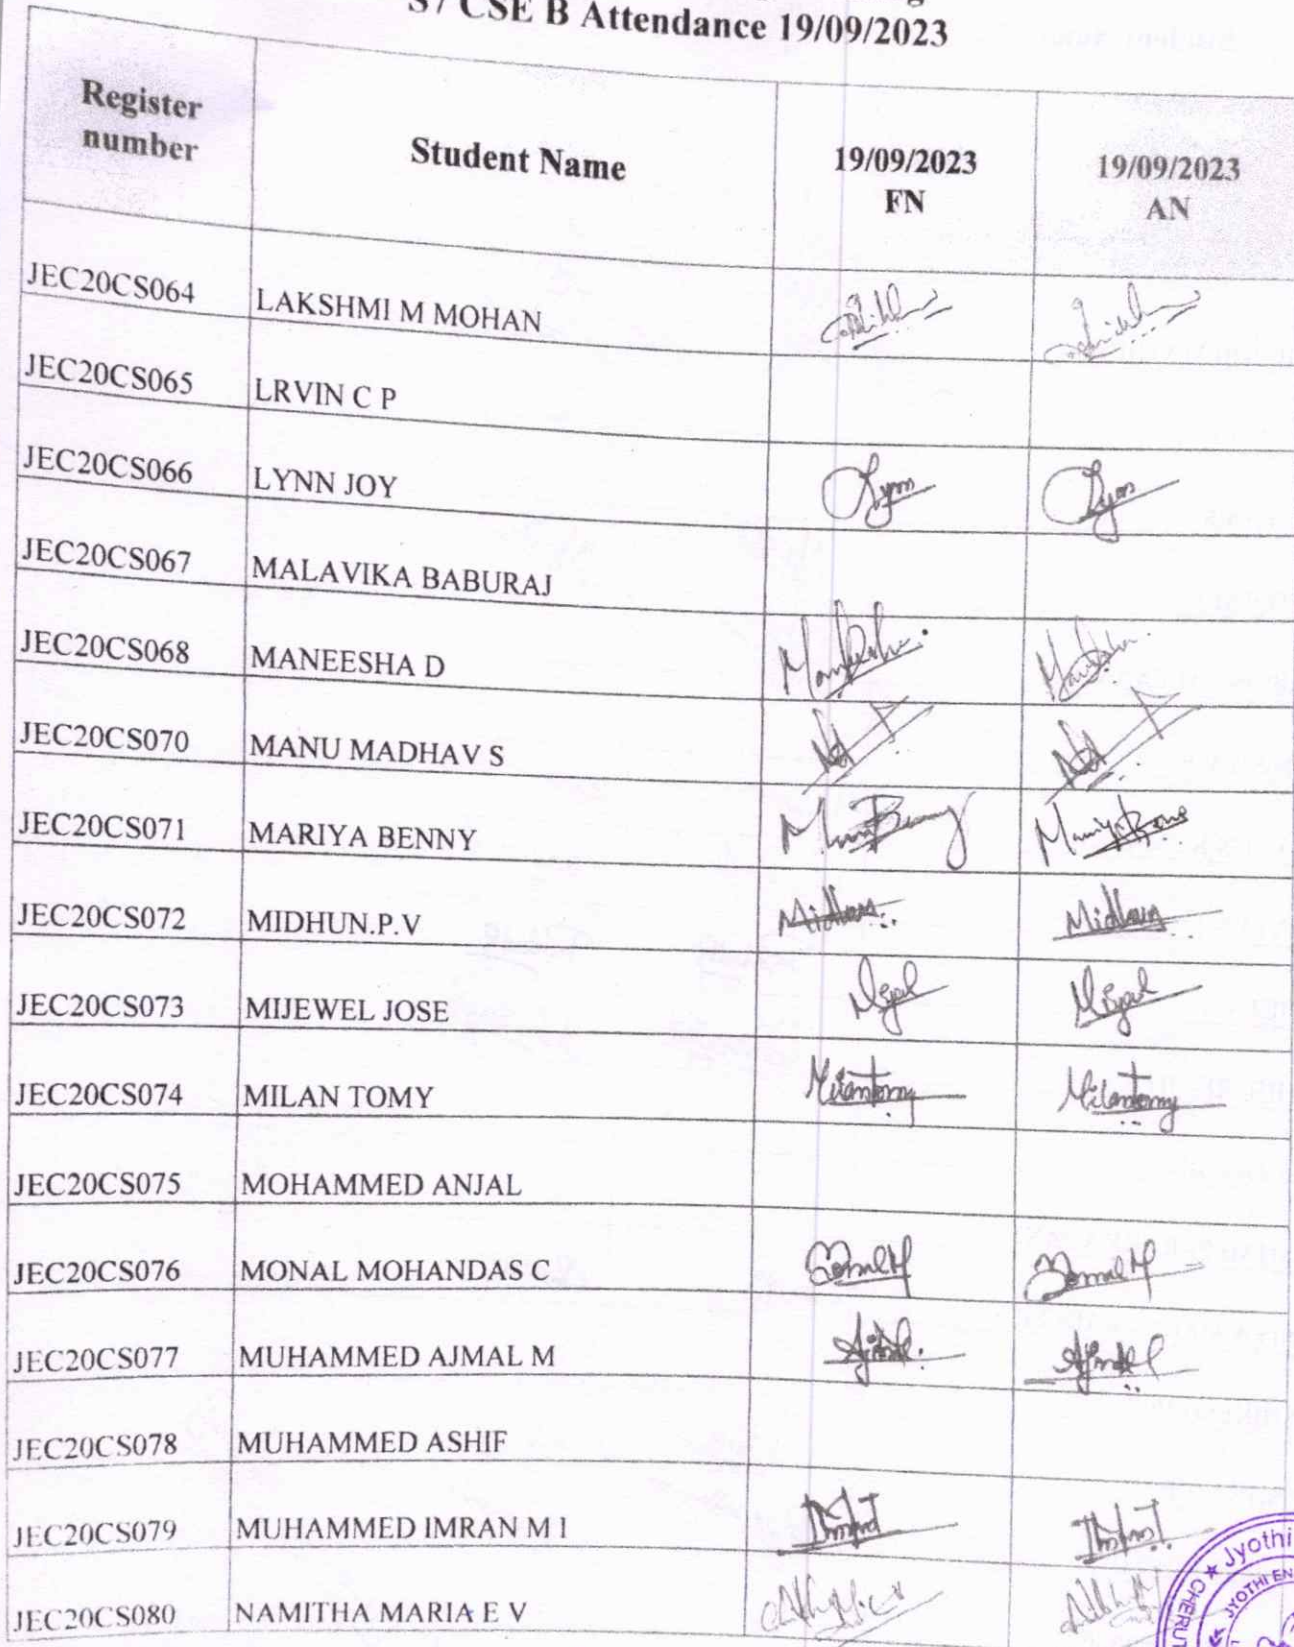 S7 CSE B Attendance 19/09/2023
Register number Student Name 19/09/2023 FN 19/09/2023 AN
JEC20CS064 LAKSHMI M MOHAN
JEC20CS065 LRVIN C P
JEC20CS066 LYNN JOY Lynn Lynn
JEC20CS067 MALAVIKA BABURAJ
JEC20CS068 MANEESHA D
JEC20CS070 MANU MADHAV S
JEC20CS071 MARIYA BENNY
JEC20CS072 MIDHUN.P.V Midhun Midhun
JEC20CS073 MIJEWEL JOSE
JEC20CS074 MILAN TOMY Milantomy Milantomy
JEC20CS075 MOHAMMED ANJAL
JEC20CS076 MONAL MOHANDAS C
JEC20CS077 MUHAMMED AJMAL M
JEC20CS078 MUHAMMED ASHIF
JEC20CS079 MUHAMMED IMRAN M I
JEC20CS080 NAMITHA MARIA E V
Jyothi
JYOTHI EN
CHERU